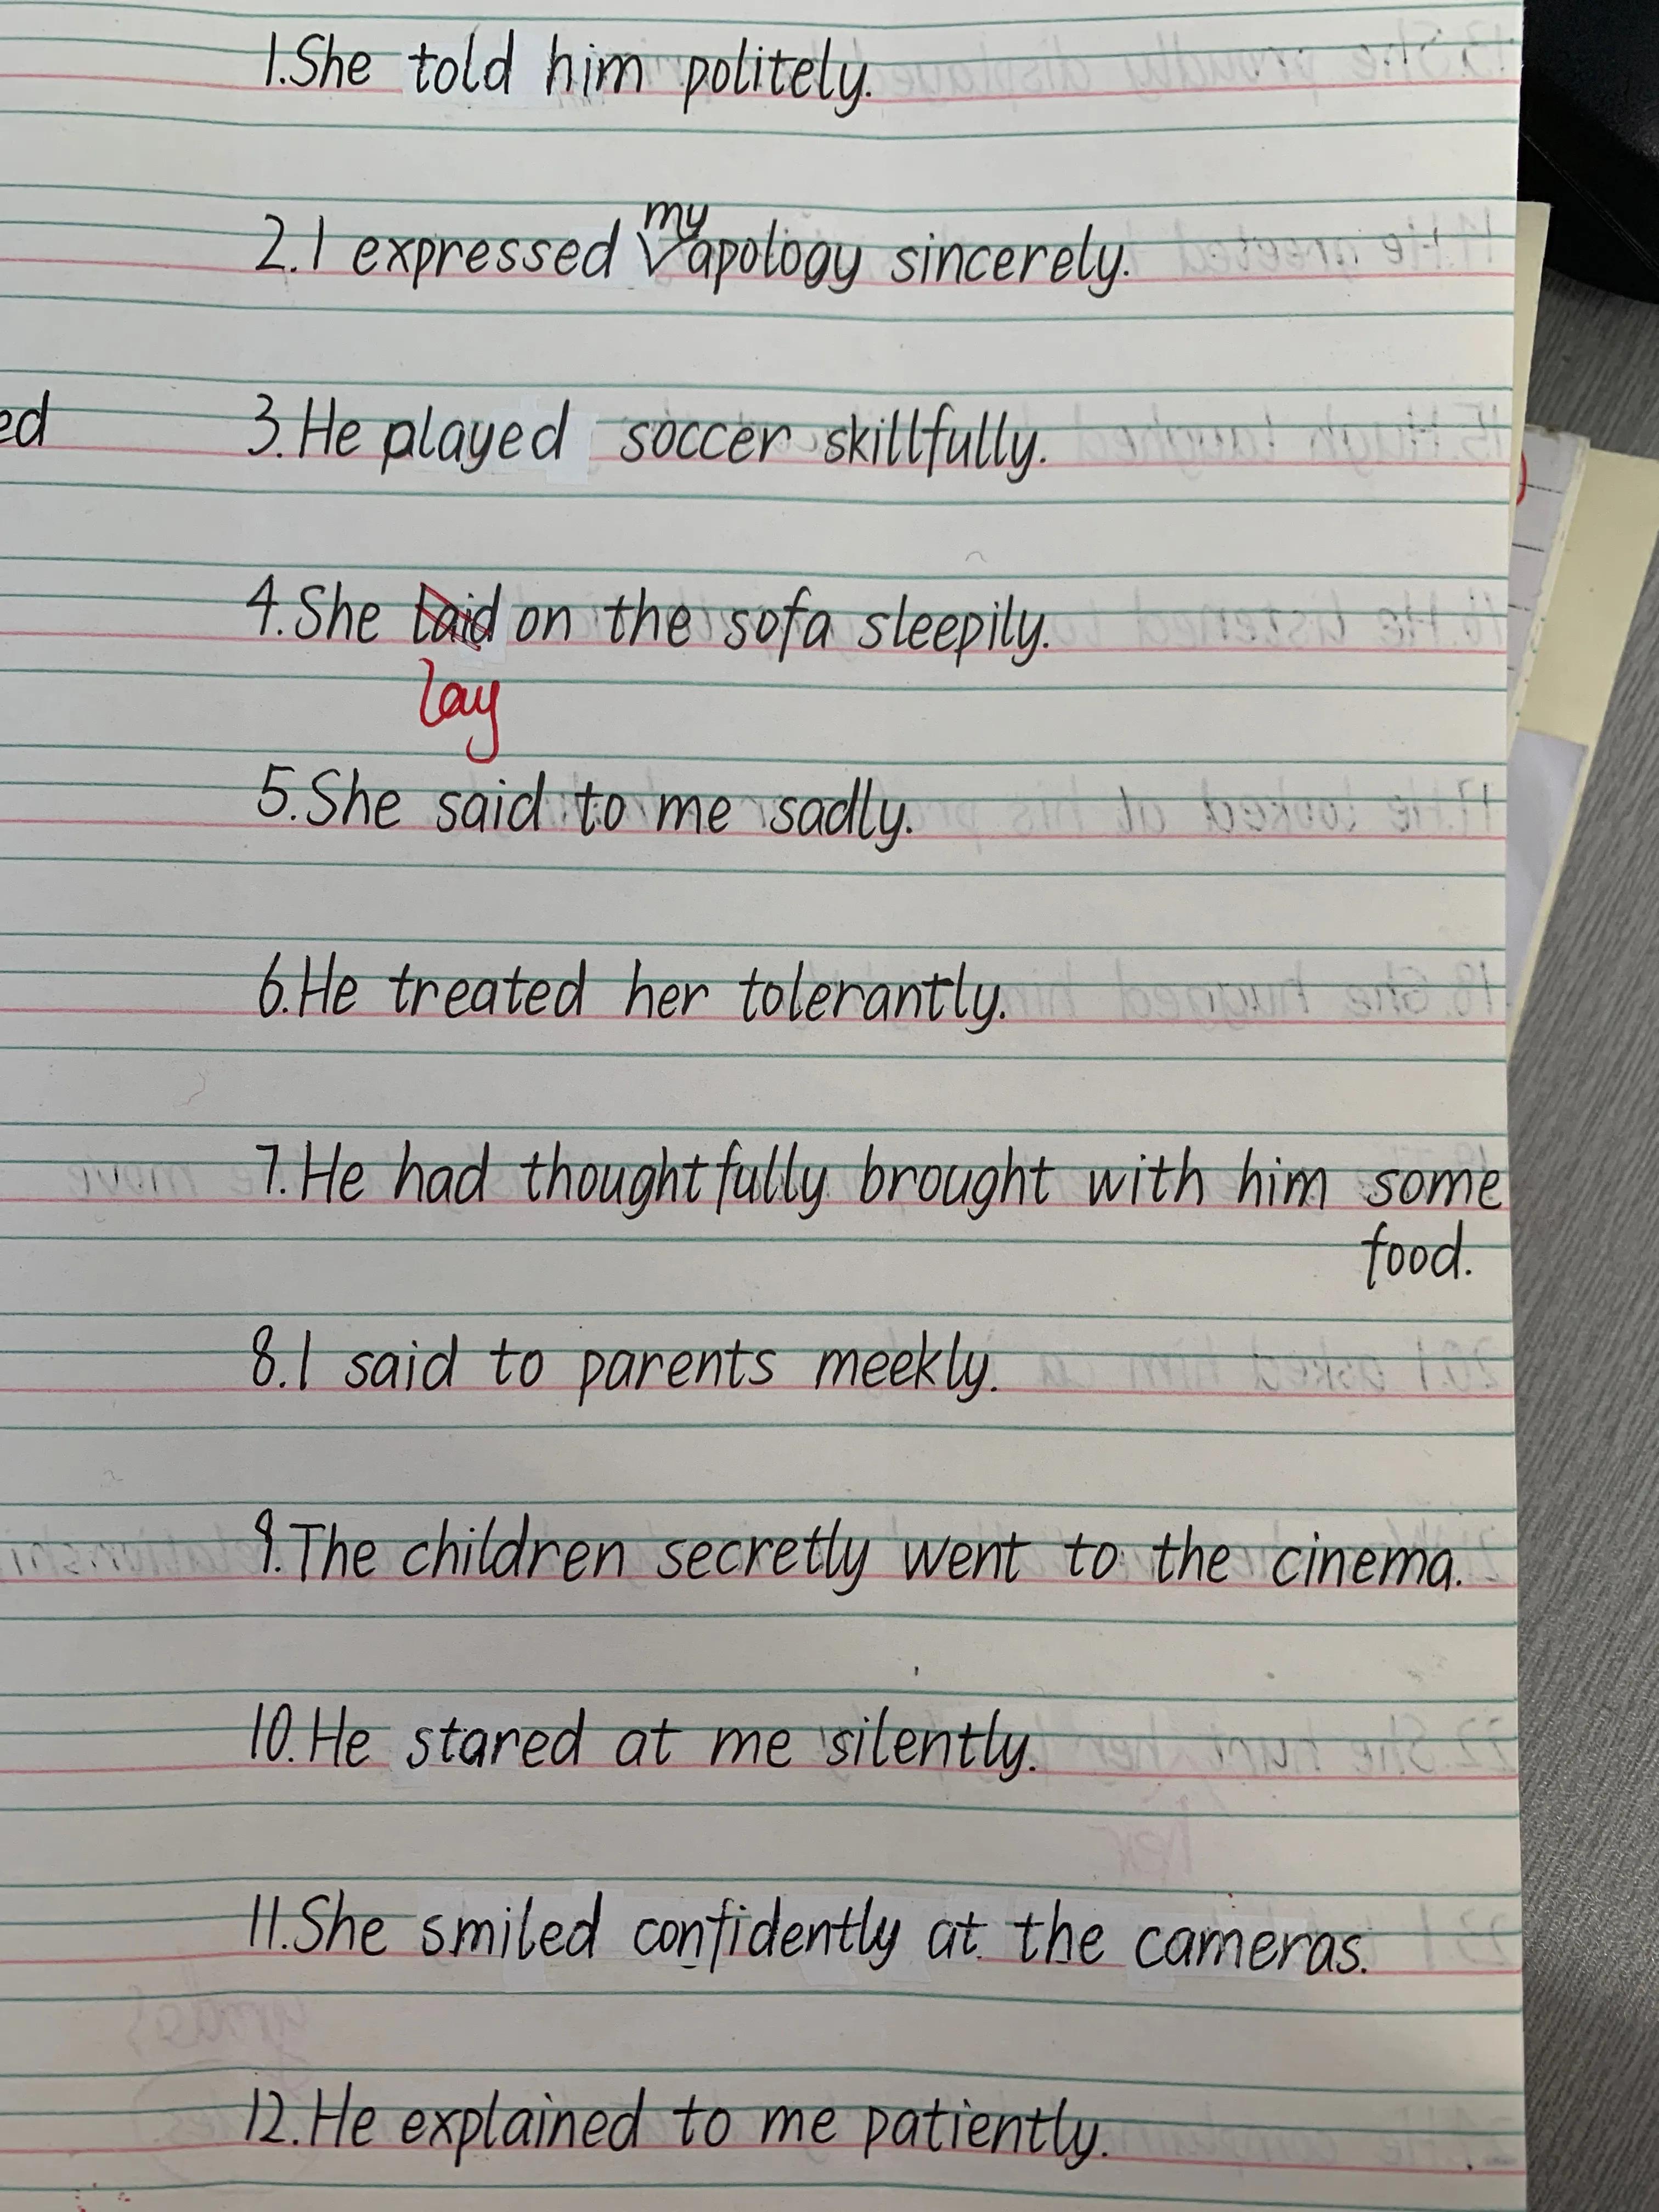 1.She told him politely.
my
2.I expressed apology sincerely.
ed
3.He played soccer skillfully.
4.She laid on the sofa sleepily.
lay
5.She said to me sadly.
6.He treated her tolerantly.
7.He had thoughtfully brought with him some
food.
8.I said to parents meekly.
9.The children secretly went to the cinema.
10.He stared at me silently.
11.She smiled confidently at the cameras.
12.He explained to me patiently.